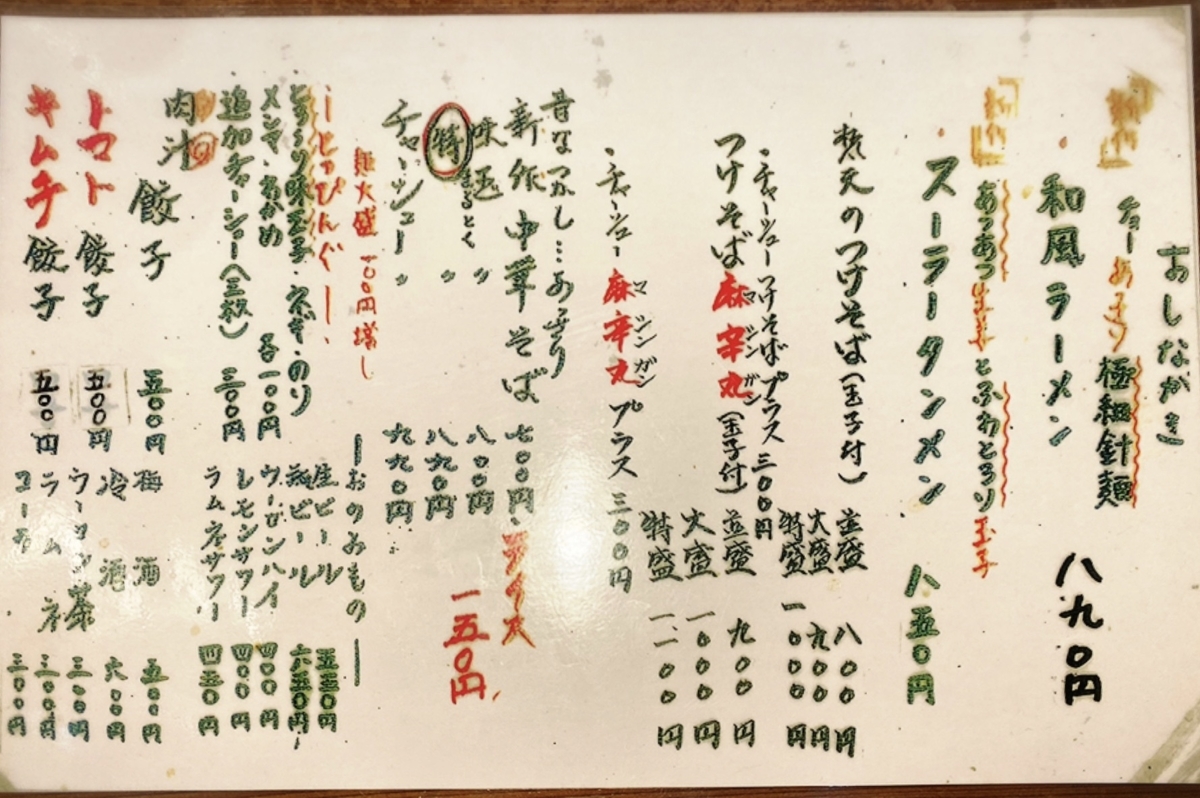 おしながき
チョーあっさり極細針麺
和風ラーメン 八九〇円
「新作」
あつあつ とふわとろり玉子
スーラータンメン 八五〇円
哲天のつけそば(玉子付)
並盛 八〇〇円
大盛 九〇〇円
特盛 一〇〇〇円
・チャーシューつけそばプラス 三〇〇円
つけそば麻辛丸(玉子付)
マシンガン
並盛 九〇〇円
大盛 一〇〇〇円
特盛 一一〇〇円
・チャーシュー麻辛丸プラス 三〇〇円
マシンガン
昔なつかし…あっさり
新作中華そば 七〇〇円
味玉 〃 八〇〇円
特 まるとく 〃 八八〇円
チャーシュー 〃 九九〇円
一五〇円
麺大盛一〇〇円増し
ーとっぴんぐー
とろ〜り味玉子・ネギ・のり
メンマ・わかめ 各一〇〇円
追加チャーシュー(三枚) 三〇〇円
肉汁餃子 五〇〇円
トマト餃子 五〇〇円
キムチ餃子 五〇〇円
ーおのみものー
生ビール 五五〇円
瓶ビール 六五〇円
ウーロンハイ 四〇〇円
レモンサワー 四〇〇円
ラムネサワー 四五〇円
梅酒 五〇〇円
冷酒 六〇〇円
ウーロン茶 三〇〇円
ラムネ 三〇〇円
コーラ 三〇〇円